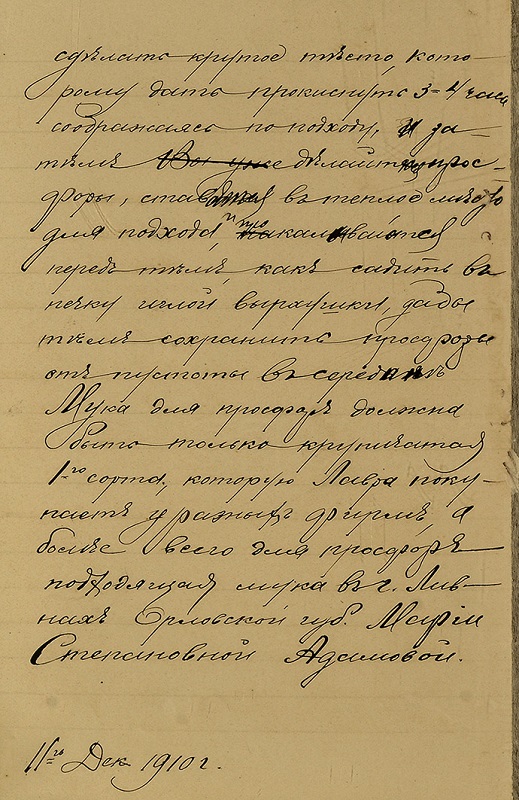 сдѣлать крутое тѣсто, кото-
рому дать прокиснуть 3=4 часа
соображаясь по подходу. И за-
тѣмъ дѣлайте прос-
форы, ставятся въ теплое мѣсто
для подхода, и прокалываются
передъ тѣмъ, какъ садить въ
печку иглой выраушки, дабы
тѣмъ сохранить просфоры
отъ пустоты въ серединѣ
Мука для просфоръ должна
быть только крупичатая
1-го сорта, которую Лавра поку-
паетъ у разныхъ фирмъ, а
болѣе всего для просфоръ
подходящая мука въ г. Лив-
нахъ Орловской губ. Маріи
Степановной Адамовой.
11го Дек 1910 г.